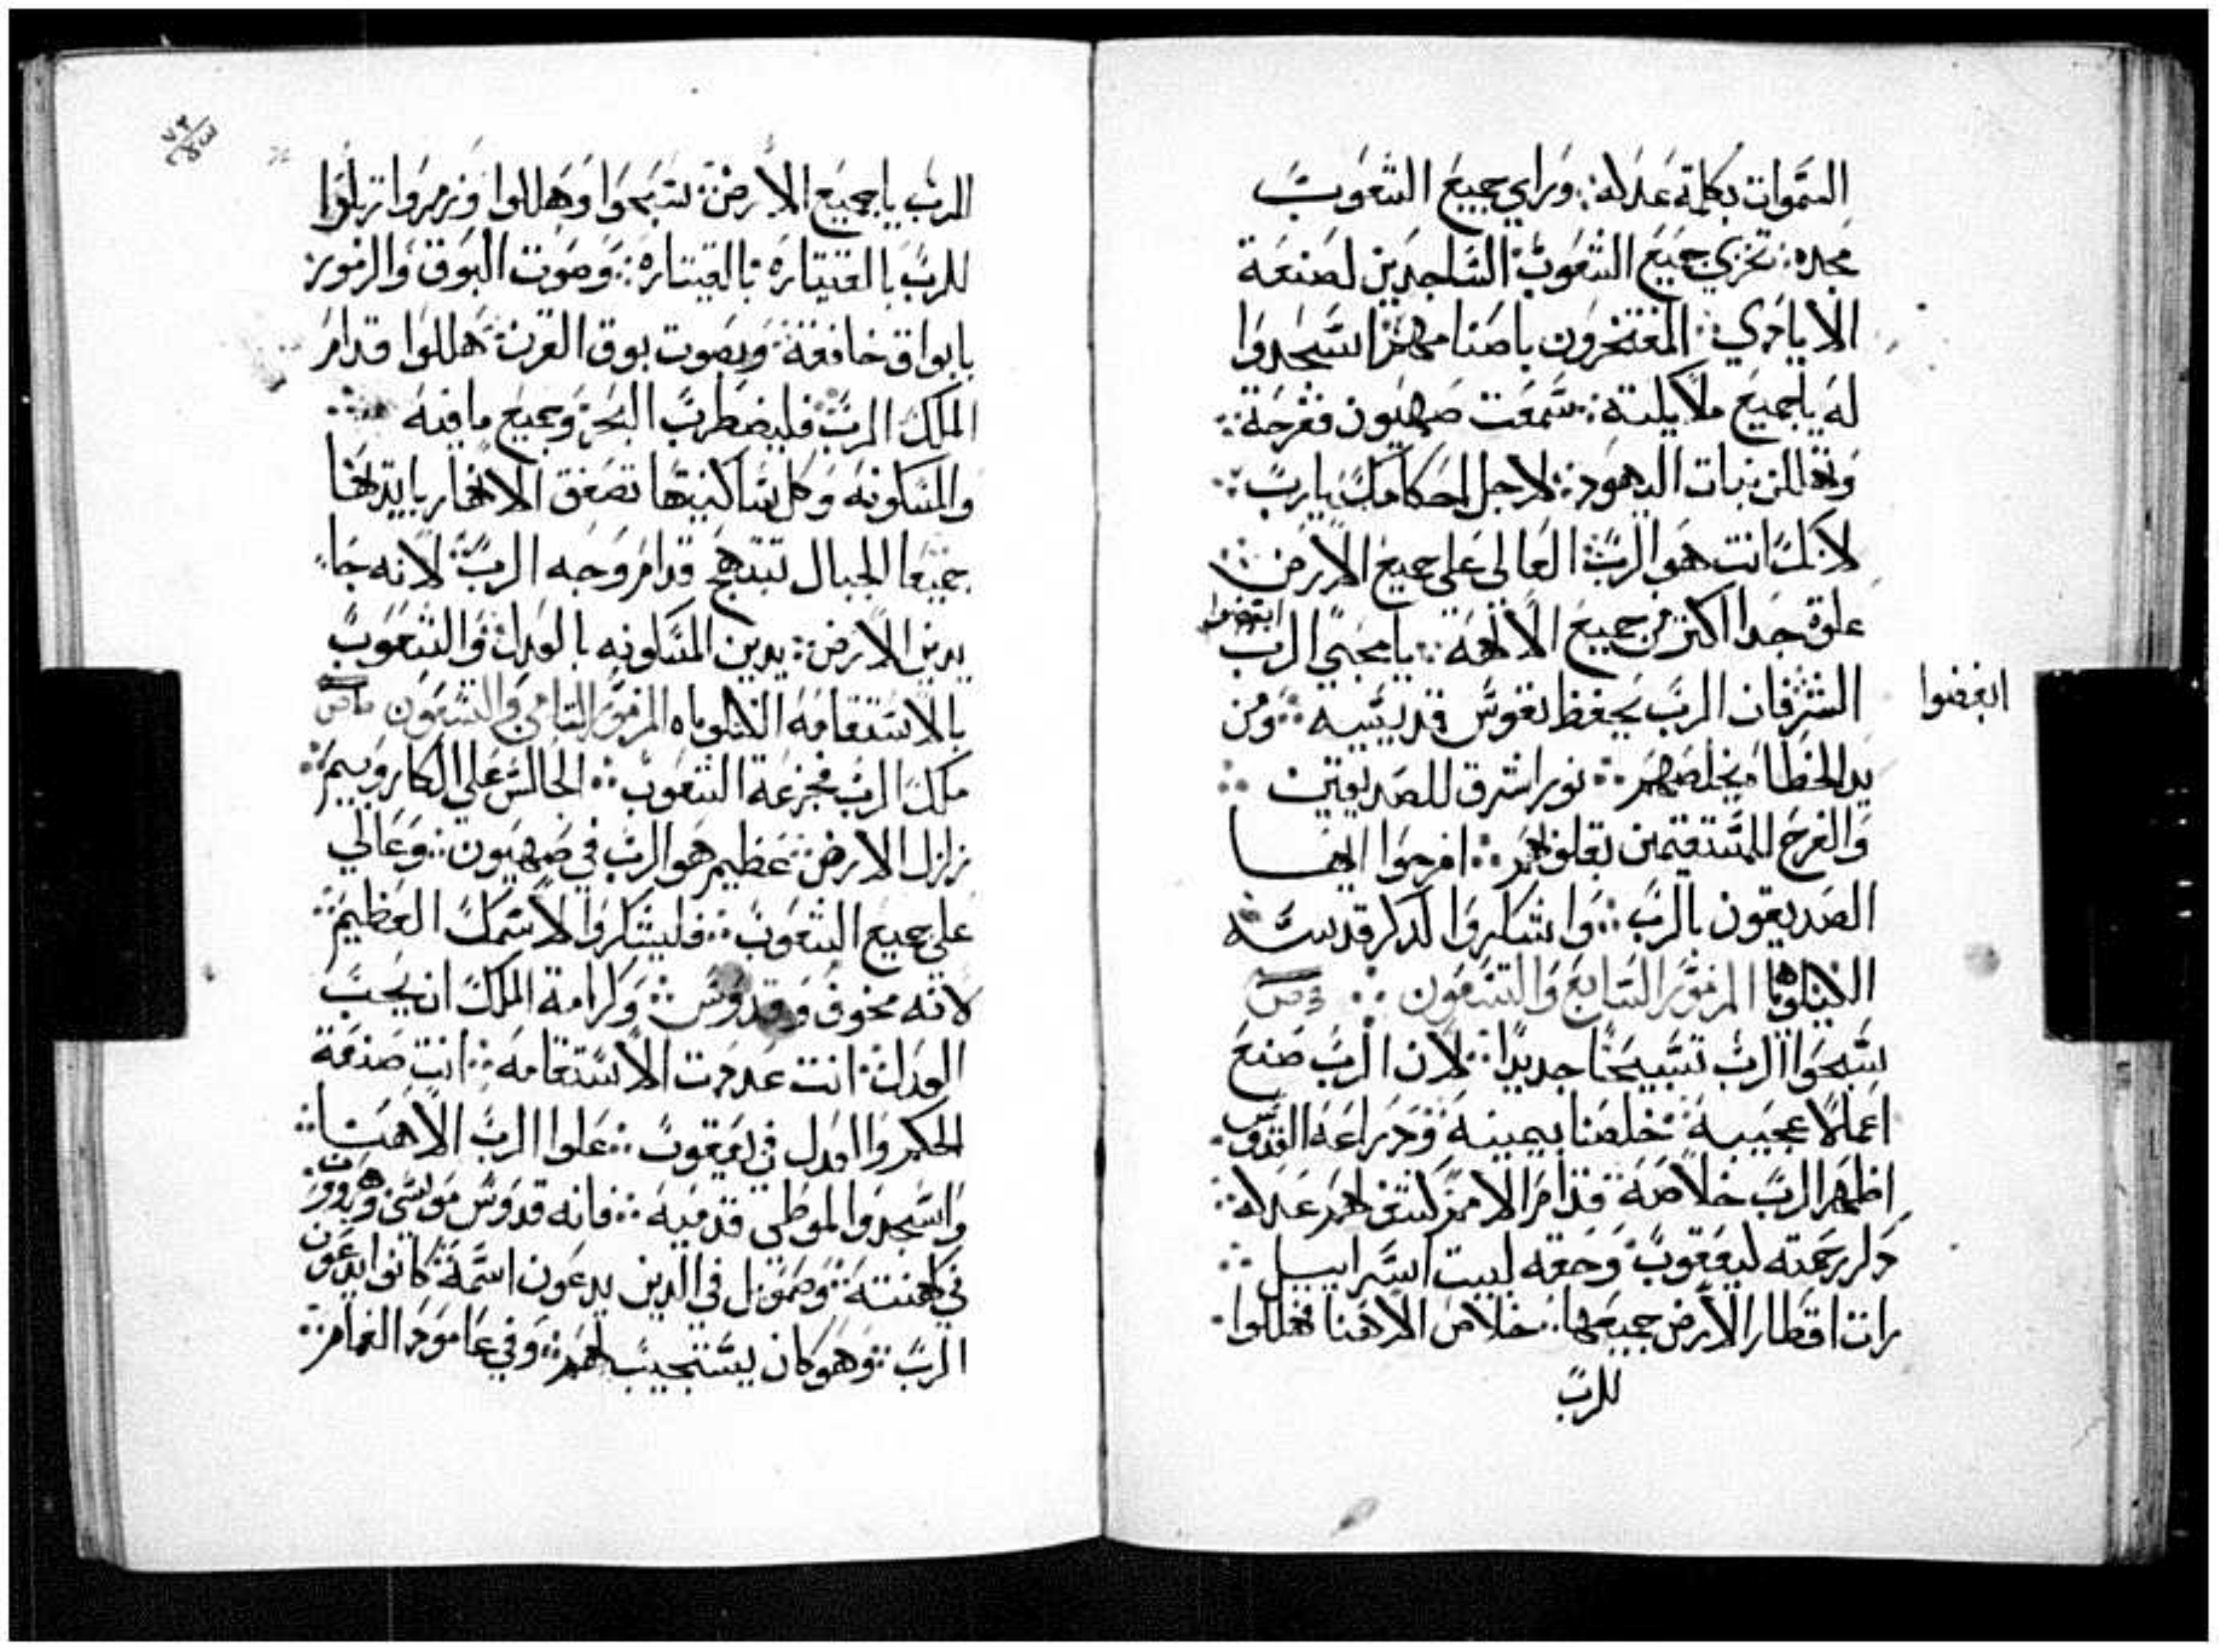 السموات بكلمة عدله ⁘ وراي جميع الشعوب
مجده ⁘ تخزي جميع الشعوب ⁘ الساجدين لصنعة
الايادي ⁘ المفتخرون باصنامهم ⁘ اسجدوا
له يا جميع ملايكته ⁘ سمعت صهيون ففرحة ⁘
وتهللن بنات اليهود ⁘ لاجل احكامك يارب ⁘
لانك انت هو الرب العالي على جميع الارض ⁘
علوة جدا اكتر من جميع الالهة ⁘ يا محبي الرب ابغضوا
ابغضوا
الشر فان الرب يحفظ نفوس قديسيه ⁘ ومن
يد الخطاه يخلصهم ⁘ نور اشرق للصديقين ⁘
والفرح للمستقيمين بقلوبهم ⁘ افرحوا ايها
الصديقون بالرب ⁘ واشكروا لذكر قدسه
الليلويا المزمور السابع والتسعون ⁘
سبحوا الرب تسبيحا جديدا ⁘ لان الرب صنع
اعمالا عجيبة ⁘ خلصنا بيمينه ودراعه القدوس ⁘
اظهر الرب خلاصه ⁘ قدام الامم كشف لهم عدله ⁘
دكر رحمته ليعقوب وحقه لبيت اسراييل ⁘
رات اقطار الارض جميعها ⁘ خلاص الاهنا فهللوا ⁘
للرب
الرب يا جميع الارض ⁘ سبحوا وهللوا وزمروا رتلوا
للرب بالقيتاره ⁘ بالقيتاره ⁘ وصوت البوق والزمور ⁘
بابواق خافقة ⁘ وبصوت بوق القرن ⁘ هللوا قدام
الملك الرب ⁘ فليضطرب البحر وجميع ما فيه ⁘
والمسكونه وكل ساكنيها تصفق الانهار بايديها
جميعا الجبال تبتهج قدام وجه الرب ⁘ لانه جا
يدين الارض ⁘ يدين المسكونه بالعدل ⁘ والشعوب
بالاستقامه الليلوياه المزمور التامن والتسعون
ملك الرب فجزعة الشعوب ⁘ الجالس على الكاروبيم ⁘
تزلزل الارض ⁘ عظيم هو الرب في صهيون ⁘ وعالي
على جميع الشعوب ⁘ فليشكروا لاسمك العظيم ⁘
لانه مخوف وقدوس ⁘ وكرامة الملك ان يحب
العدل ⁘ انت عددت الاستقامه ⁘ انت صنعة
الحكم والعدل في يعقوب ⁘ علوا الرب الاهنا ⁘
واسجدوا لموطي قدميه ⁘ فانه قدوس موسى وهرون
في كهنته ⁘ وصموييل في الدين يدعون اسمه ⁘ كانوا يدعون
الرب ⁘ وهو كان يستجيب لهم ⁘ وفي عامود الغمام ⁘